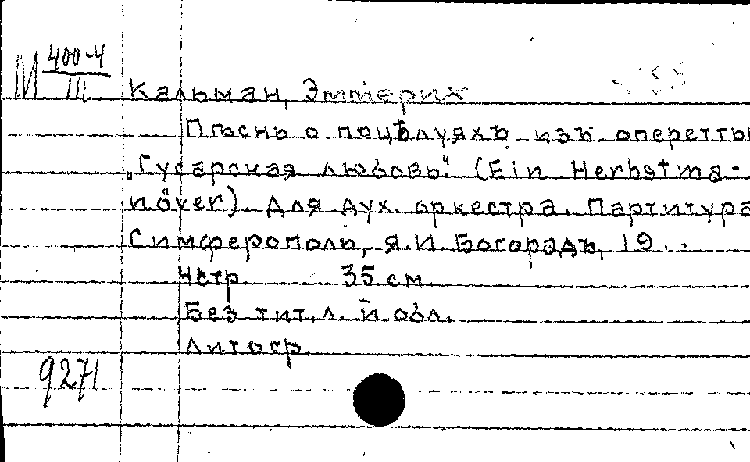 М 400-4
III
Кальман, Эммерих
Пѣснь о поцѣлуяхъ изъ оперетты
„Гусарская любовь" (Ein Herbstma-
növer). Для дух. оркестра. Партитура
Симферополь, Я.И. Богорадъ, 19..
4стр. 35 см.
Без тит. л. и обл.
Литогр.
9271